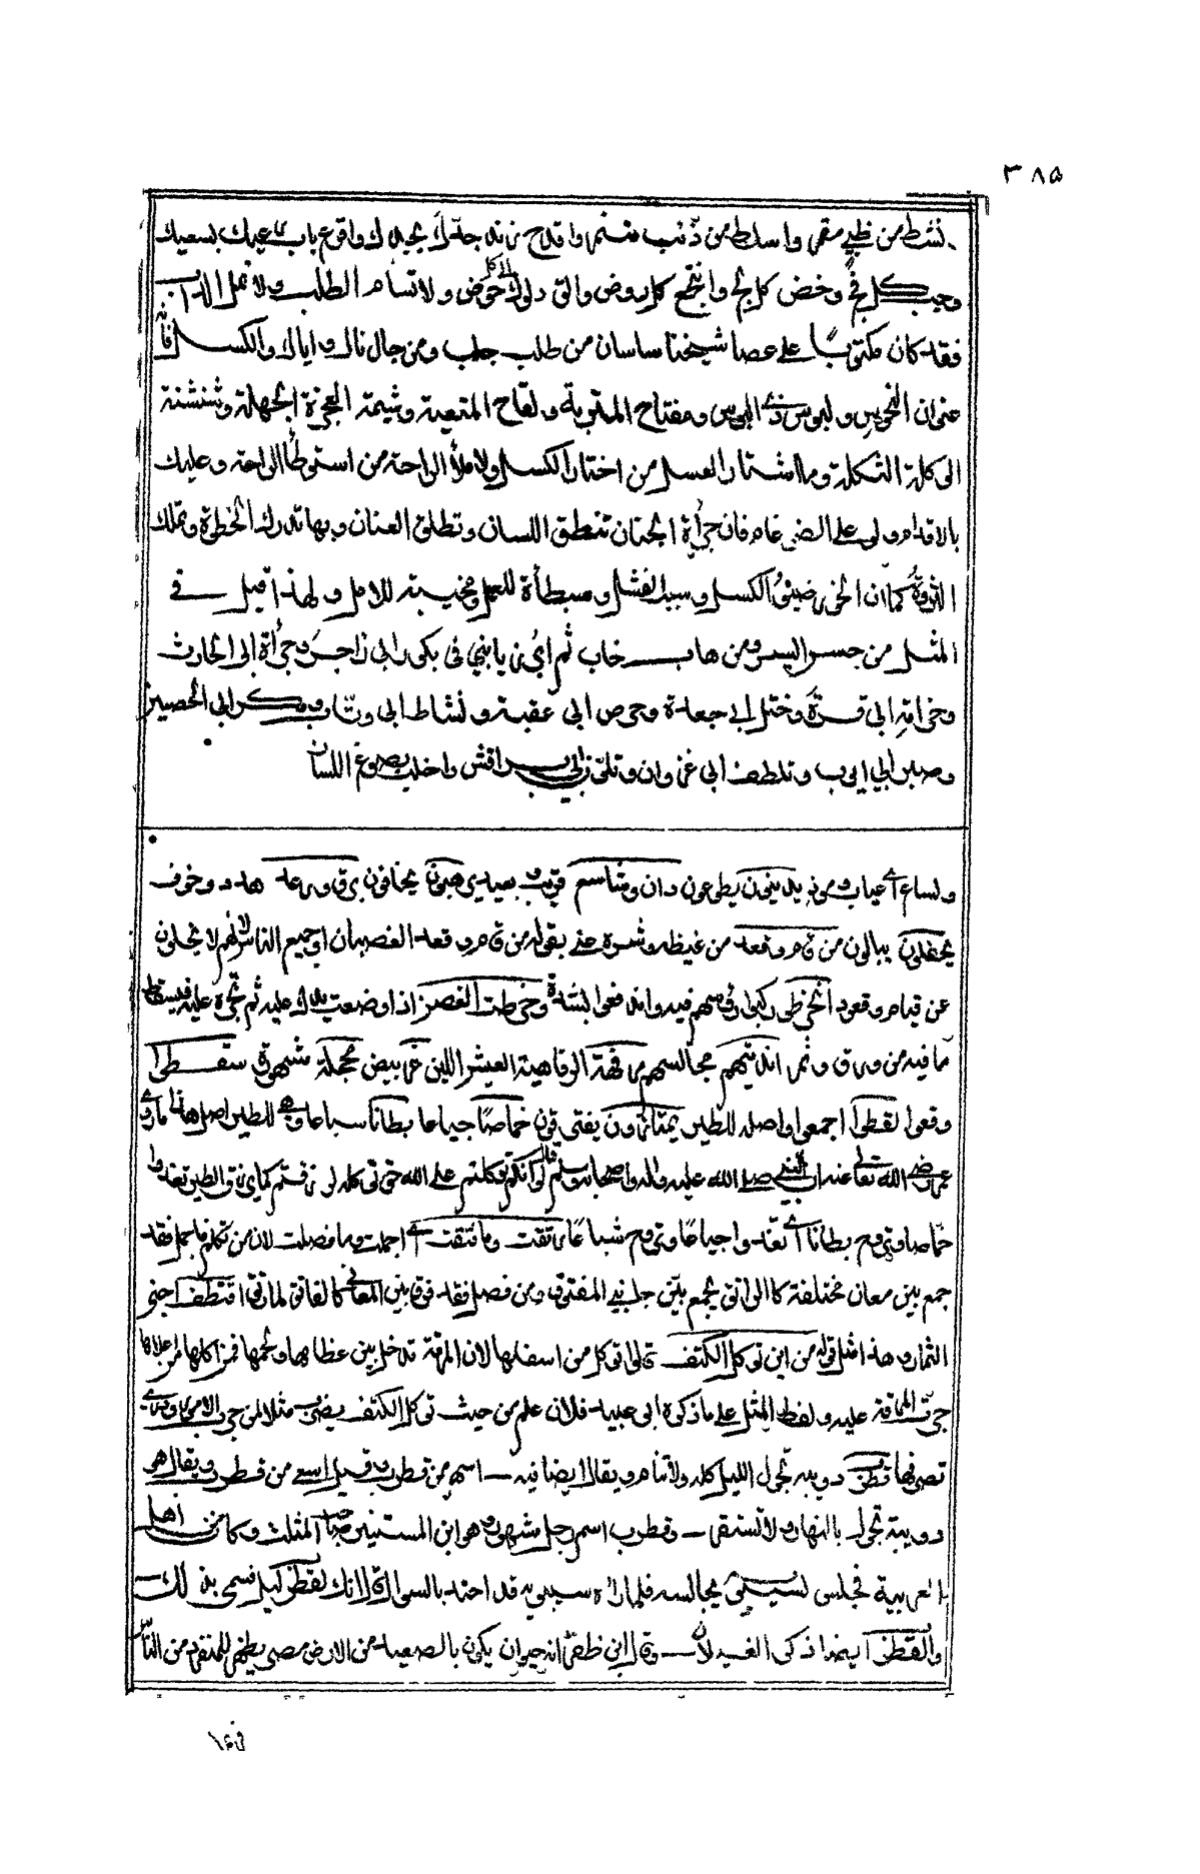 ٣٨٥
نشط من ظبي مقمر واسلط من ذئب متنمر واقدح زند جدك بجدك واقرع باب رعيك بسعيك
وجب كل فج وخض كل لج وانتجع كل روض والق دلوك الى كل حوض ولا تسأم الطلب ولا تمل الداب
فقد كان مكتوبا على عصا شيخنا ساسان من طلب جلب ومن جال نال واياك والكسل فانه
عنوان النحوس ولبوس ذوي البوس ومفتاح المتربة ولقاح المتعبة وشيمة العجزة الجهلة وشنشنة
الوكلة التكلة وما اشتار العسل من اختار الكسل ولا ملأ الراحة من استوطأ الراحة وعليك
بالاقدام ولو على الضرغام فان جرأة الجنان تنطق اللسان وتطلق العنان وبها تدرك الحظوة وتملك
الثروة كما ان الخور صنو الكسل وسبب الفشل ومبطأة للعمل ومخيبة للامل ولهذا قيل في
المثل من جسر ايسر ومن هاب خاب ثم ابرز يا بني في بكور ابي زاجر وجرأة ابي الحارث
وحزامة ابي قرة وختل ابي جعدة وحرص ابي عقبة ونشاط ابي وثاب ومكر ابي الحصين
وصبر ابي ايوب وتلطف ابي غزوان وتلون ابي براقش واخلب بصوغ اللسان
يدينون يطيعون دان ومناسم قريب بعيد يرهبون يخافون برق ورعد هدد وخوف
يحفلون يبالون من قام وقعد من غيظه وشره حتى يقوله من قام وقعد الغضبان او جميع الناس لانهم لا يخلون
عن قيام وقعود انخرطوا ركبوا رؤسهم فيه واندفعوا بشدة وخرطت الغصن اذا وضعت يدك عليه ثم تجره عليه فيسقط
ما فيه من ورق وثمر انديتهم مجالسهم مرفهة الرفاهية العيش اللين غر بيض محجلة مشهورة سقطوا
وقعوا لقطوا اجمعوا واصله للطير يمتارون يفترقون خماصا جياعا بطانا سباعا وهي للطير اصل هذا ما روى
عمر رضي الله تعالى عنه ان النبي صلى الله عليه واله واصحابه وسلم قال لو انكم توكلتم على الله حق توكله لرزقتم كما يرزق الطير تغدوا
خماصا وتروح بطانا اي تغدوا جياعا وتروح شباعا رتقت وما فتقت اي اجملت وما فصلت لان من تكلم فاجمل فقد
جمع بين معان مختلفة كالراتق يجمع بين جانبي المفتوق ومن فصل فقد فرق بين المعاني كالفاتق لما رتق اقتطف اجني
الثمار وهذا مثل قوله من اين توكل الكتف قالوا توكل من اسفلها لان المرقة تدخل بين عظامها ولحمها فمن اكلها من اعلاها
جرت المرقة عليه ولفظ المثل على ما ذكره ابو عبيد فلان علم من حيث توكل الكتف يضرب مثلا لمن جرب الامور ودرى
تصرفها قطرب دويبة تجول الليل كله ولا تنام ويقال ايضا فيه اسهر من قطرب وقيل اسعى من قطرب ويقال هو
دويبة تجول بالنهار ولا تستقر وقطرب اسم رجل مشهور وهو ابن المستنير صاحب المثلث وكان من اهل
بالعربية فجلس لسيبويه يجالسه فلما راه سيبويه قد اخذ بالسوال قال انك لقطرب ليل فسمي بذلك
والقطرب ايضا ذكر الغيلان وقال ابن ظفر انه حيوان يكون بالصعيد من الارض مصر يظهر للمنفرد من الناس